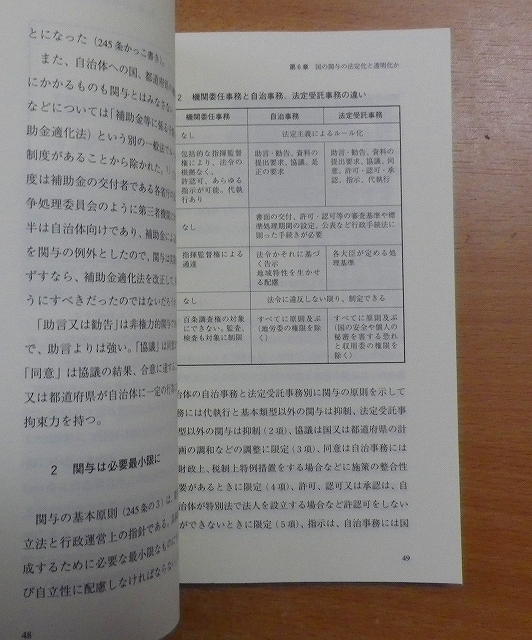 とになった（245条かっこ書き）。
また、自治体への国、都道府県の
にかかるものも関与とはみなさな
などについては「補助金等に係る予
助金適化法）という別の一般法で
制度があることから除かれた。
度は補助金の交付者である各省庁
争処理委員会のように第三者機関
半は自治体向けであり、補助金によ
を関与の例外としたので、関与は
ずすなら、補助金適化法を改正して
うにすべきだったのではないだろ
「助言又は勧告」は非権力的関与
で、助言よりは強い。「協議」は
「同意」は協議の結果、合意に達す
又は都道府県が自治体に一定の行
拘束力を持つ。
2 関与は必要最小限に
関与の基本原則（245条の3）は、
立法と行政運営上の指針である。
成するために必要な最小限なものに
び自立性に配慮しなければならない
48
第6章 国の関与の法定化と透明化か
2 機関委任事務と自治事務、法定受託事務の違い
機関委任事務 自治事務 法定受託事務
なし 法定主義によるルール化
包括的な指揮監督 助言・勧告、資料の 助言・勧告、資料の
権により、法令の 提出要求、協議、是 提出要求、協議、同
根拠なく、 正の要求 意、許可・認可・承
許認可、あらゆる 認、指示、代執行
指示が可能。代執
行あり
なし 書面の交付、許可・認可等の審査基準や標
準処理期間の設定、公表など行政手続法に
則った手続きが必要
指揮監督権による 法令かそれに基づ 各大臣が定める処
通達 く告示 理基準
地域特性を生かせ
る配慮
なし 法令に違反しない限り、制定できる
百条調査権の対象 すべてに原則及ぶ すべてに原則及ぶ
にできない。監査、 （地労委の権限を除 （国の安全や個人の
検査も対象に制限 く） 秘書を害する恐れ
と収用委の権限を
除く）
治体の自治事務と法定受託事務別に関与の原則を示して
務には代執行と基本類型以外の関与は抑制、法定受託事
型以外の関与は抑制（2項）、協議は国又は都道府県の計
画の調和などの調整に限定（3項）、同意は自治事務には
財政上、税制上特例措置をする場合などに施策の整合性
要があるときに限定（4項）、許可、認可又は承認は、自
治体が特別法で法人を設立する場合など許認可をしない
ができないときに限定（5項）、指示は、自治事務には国
49